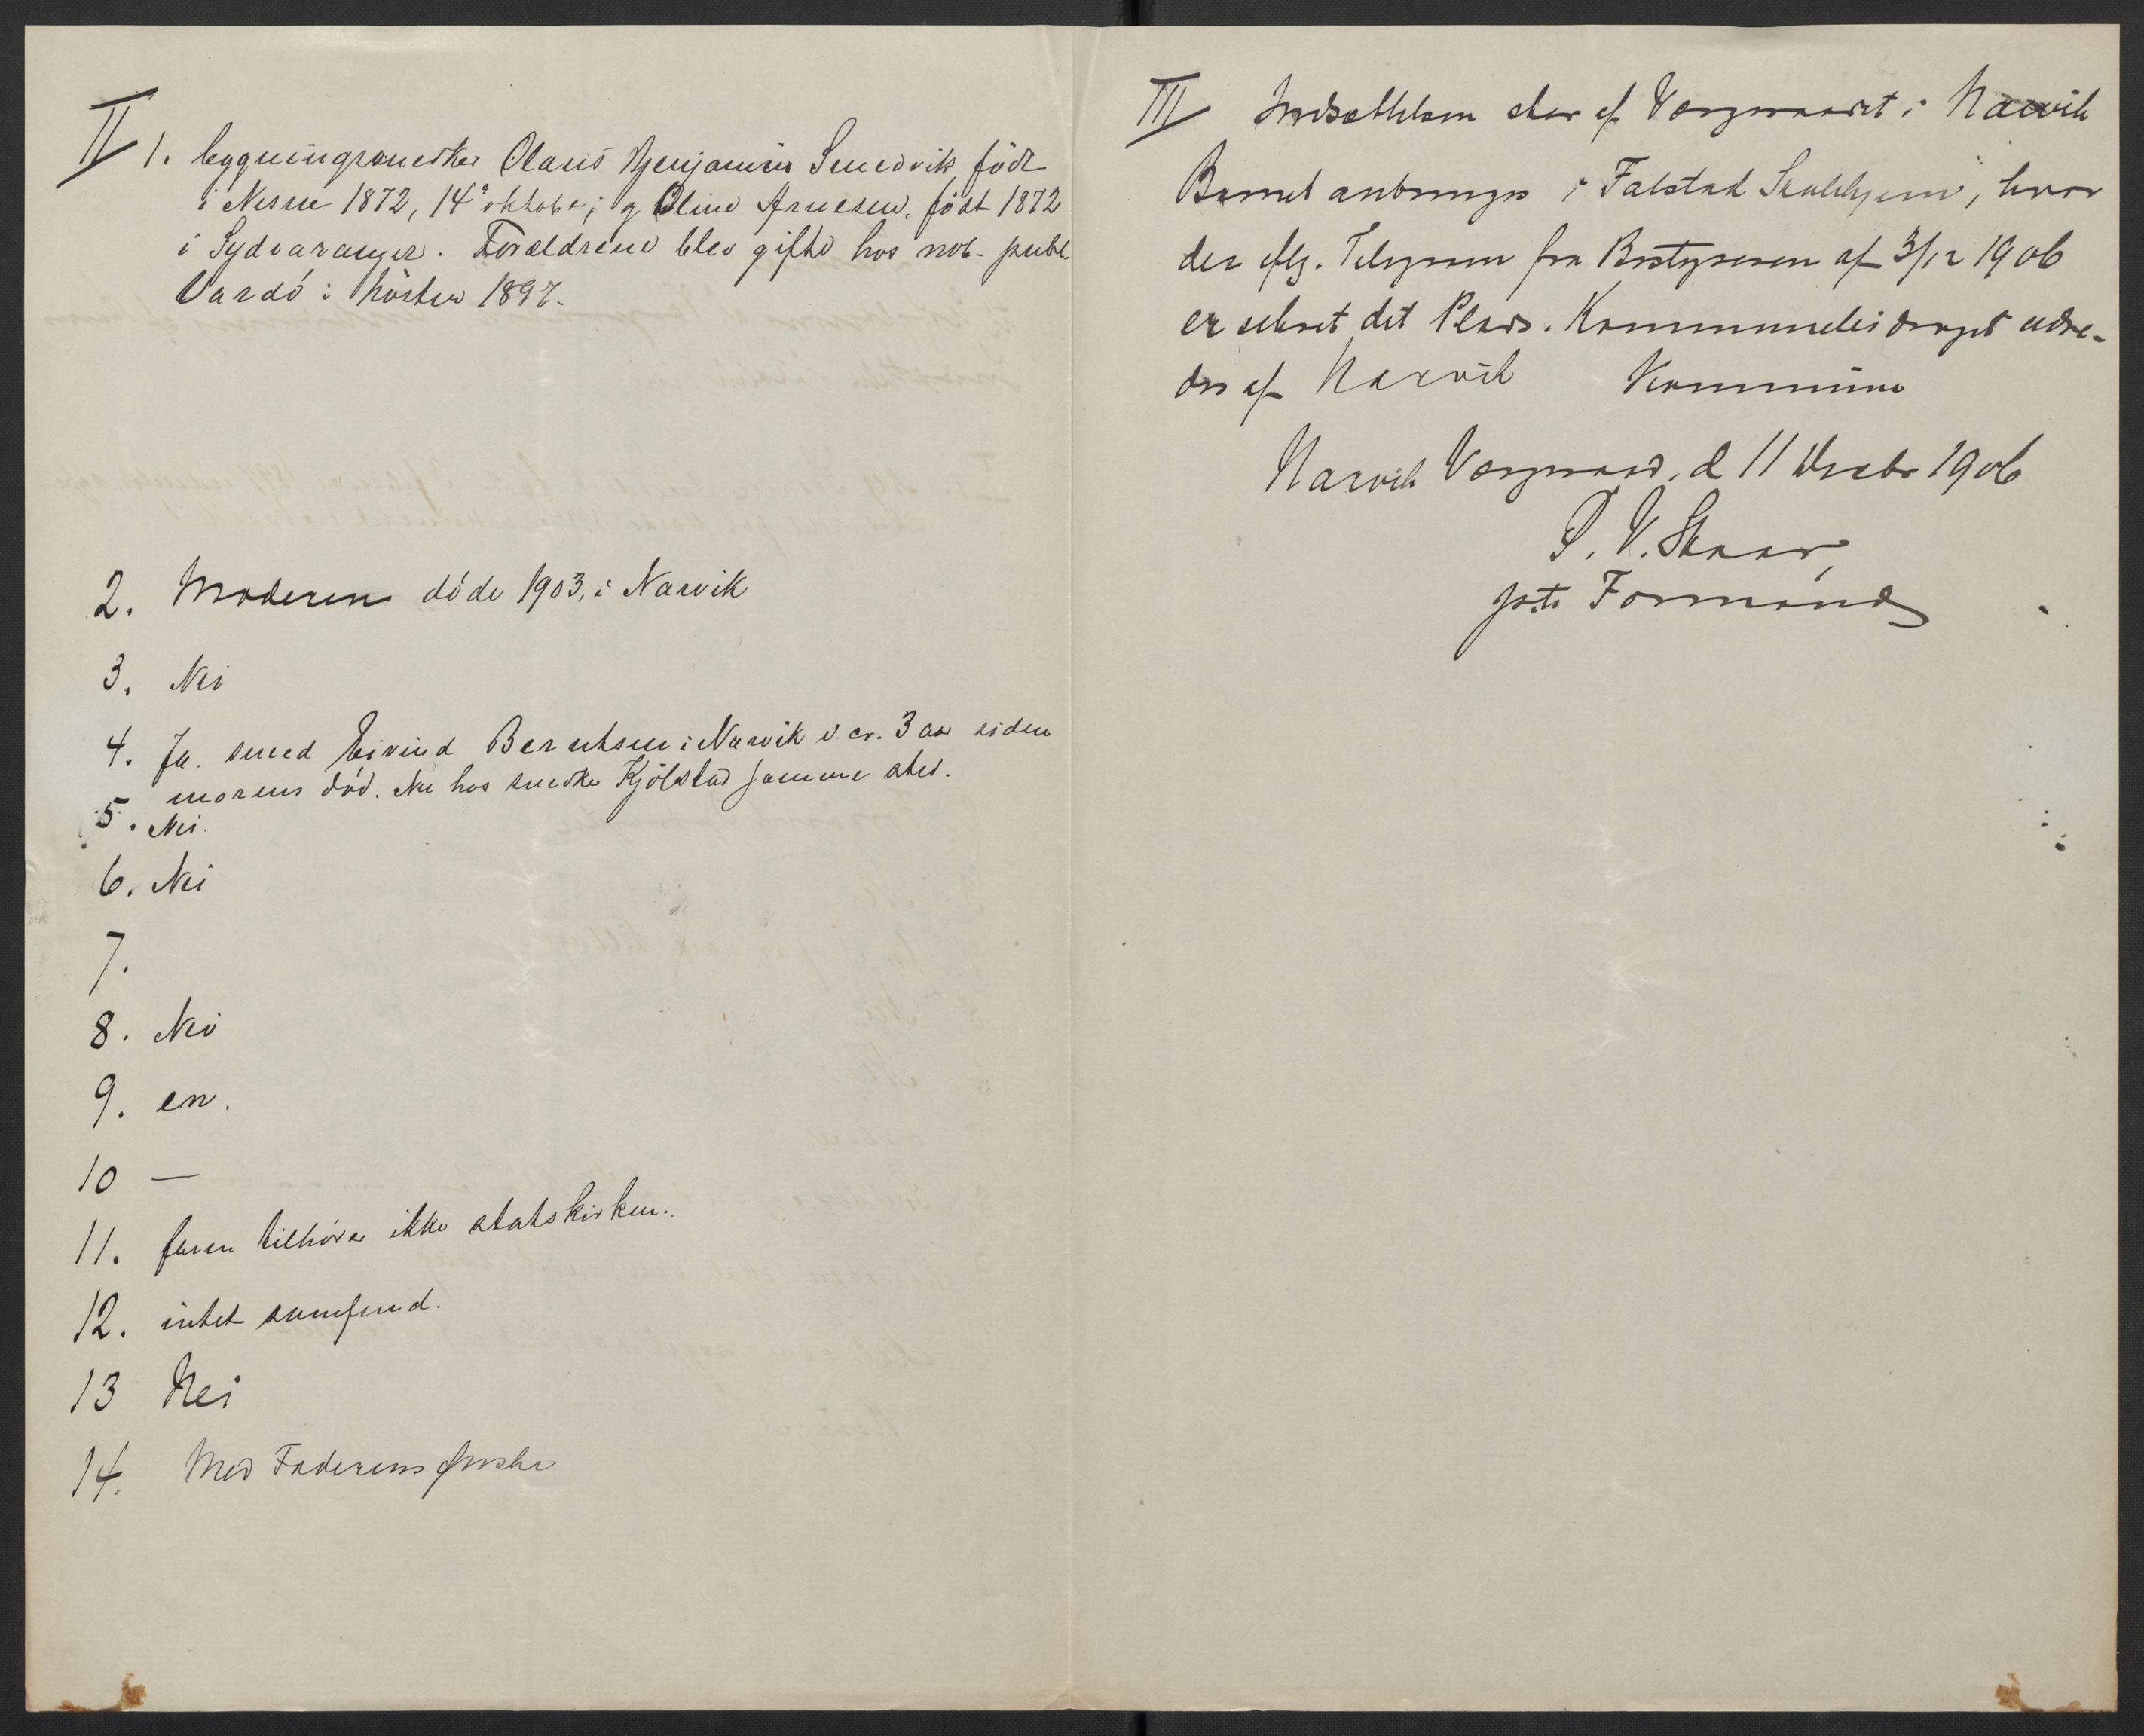 II 1. bygningssnedker Olaus Benjamin Smedvik, födt
i Nesne 1872, 14de oktober; og Oline Arnesen, födt 1872
i Sydvaranger. Forældrene blev gifte hos not. publ.
Vardö i hösten 1897.
2. Moderen döde 1903, i Narvik
3. Nei
4. Ja. smed Eivind Berntsen i Narvik i ca. 3 aar siden
morens död. Nu hos snedker Kjölstad samme sted.
5. Nei.
6. Nei
7.
8. Nei
9. en.
10 —
11. faren tilhörer ikke statskirken.
12. intet samfund.
13 Nei
14. Med Faderens Ønske
III Indsættelsen sker af Vergeraadet i Narvik
Barnet anbringes i Falstad Skolehjem, hvor
der iflg. Telegram fra Bestyreren af 3/12 1906
er sikret det Plads. Kommunebidraget udre-
des af Narvik Kommune
Narvik Vergeraad, d 11 Decbr 1906
P. V. Skaar,
fgt. Formand